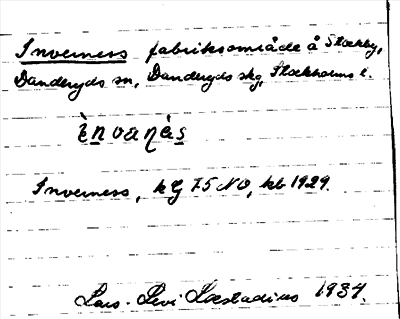 Inverness fabriksområde å Stocksby,
Danderyds sn, Danderyds skg, Stockholms l.
ìnvanạ̈̀s
Inverness, kG 75 NO, kb 1929.
Lars-Levi Læstadius 1937.